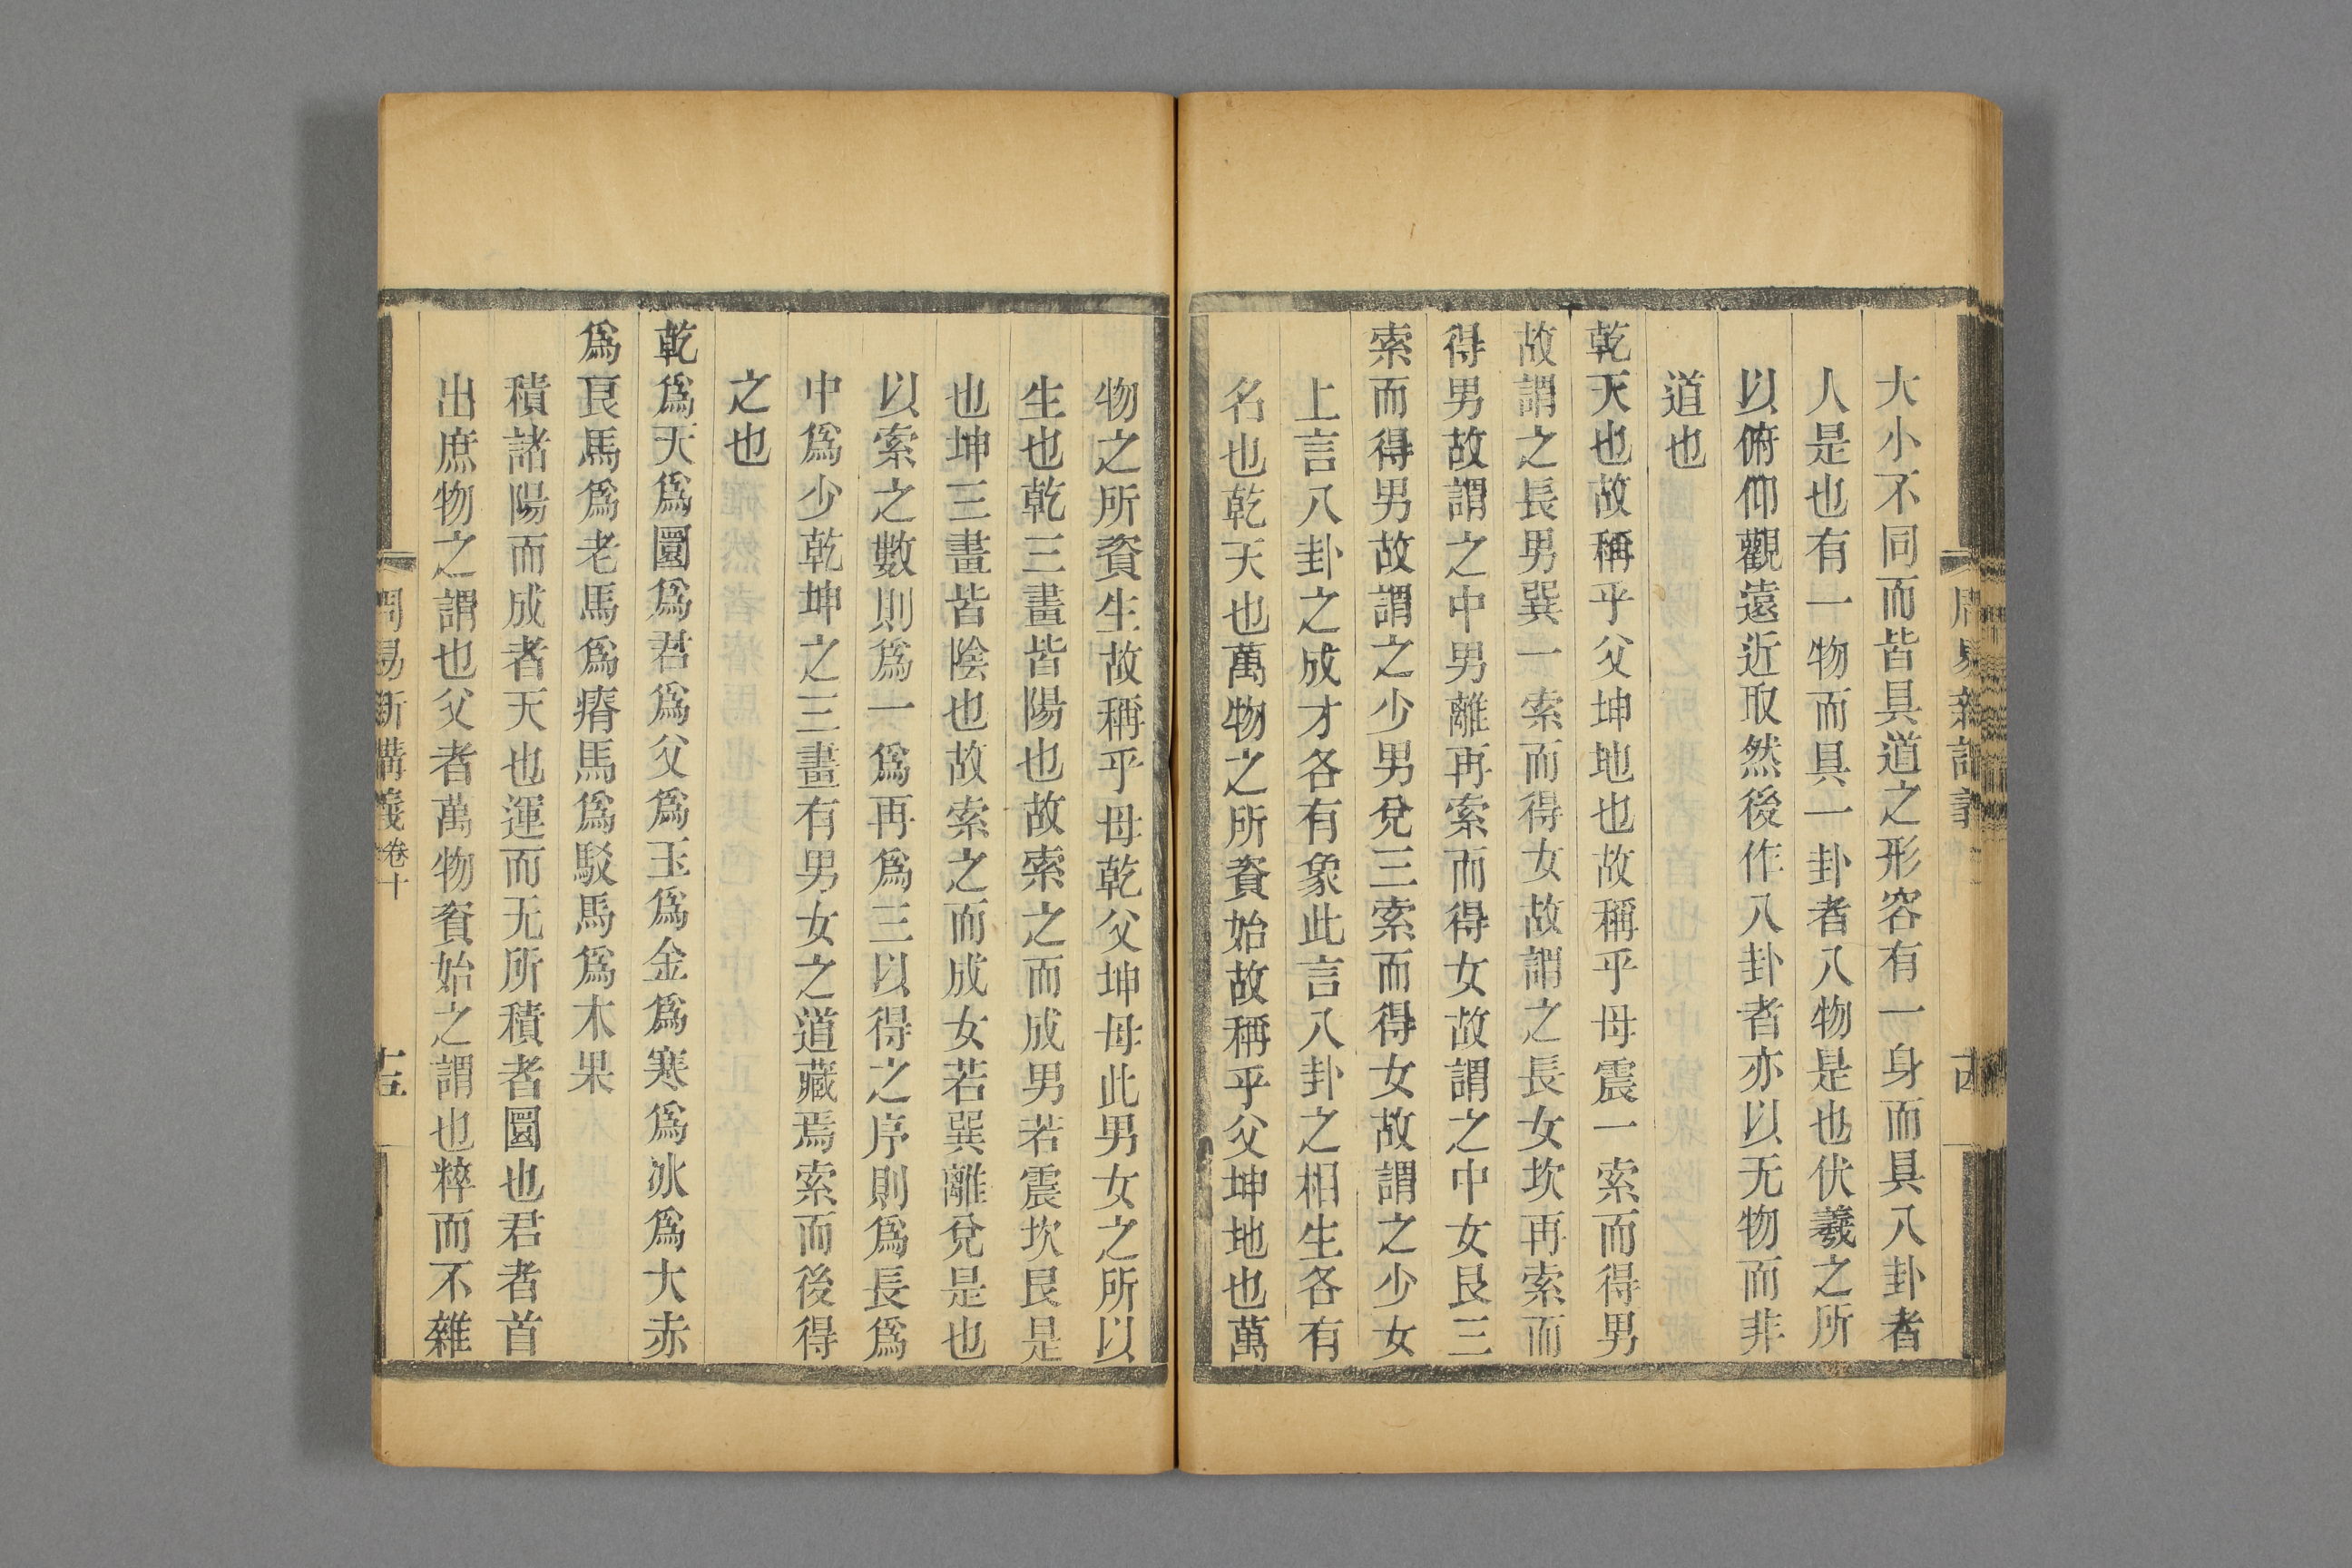 大小不同而皆具道之形容有一身而具八卦者
人是也有一物而具一卦者八物是也伏羲之所
以俯仰觀遠近取然後作八卦者亦以无物而非
道也
乾天也故稱乎父坤地也故稱乎母震一索而得男
故謂之長男巽一索而得女故謂之長女坎再索而
得男故謂之中男離再索而得女故謂之中女艮三
索而得男故謂之少男兌三索而得女故謂之少女
上言八卦之成才各有象此言八卦之相生各有
名也乾天也萬物之所資始故稱乎父坤地也萬
物之所資生故稱乎母乾父坤母此男女之所以
生也乾三畫皆陽也故索之而成男若震坎艮是
也坤三畫皆陰也故索之而成女若巽離兌是也
以索之數則爲一爲再爲三以得之序則爲長爲
中爲少乾坤之三畫有男女之道藏焉索而後得
之也
乾爲天爲圜爲君爲父爲玉爲金爲寒爲冰爲大赤
爲良馬爲老馬爲瘠馬爲駁馬爲木果
積諸陽而成者天也運而无所積者圜也君者首
出庶物之謂也父者萬物資始之謂也粹而不雜
周易新講義卷十
十五